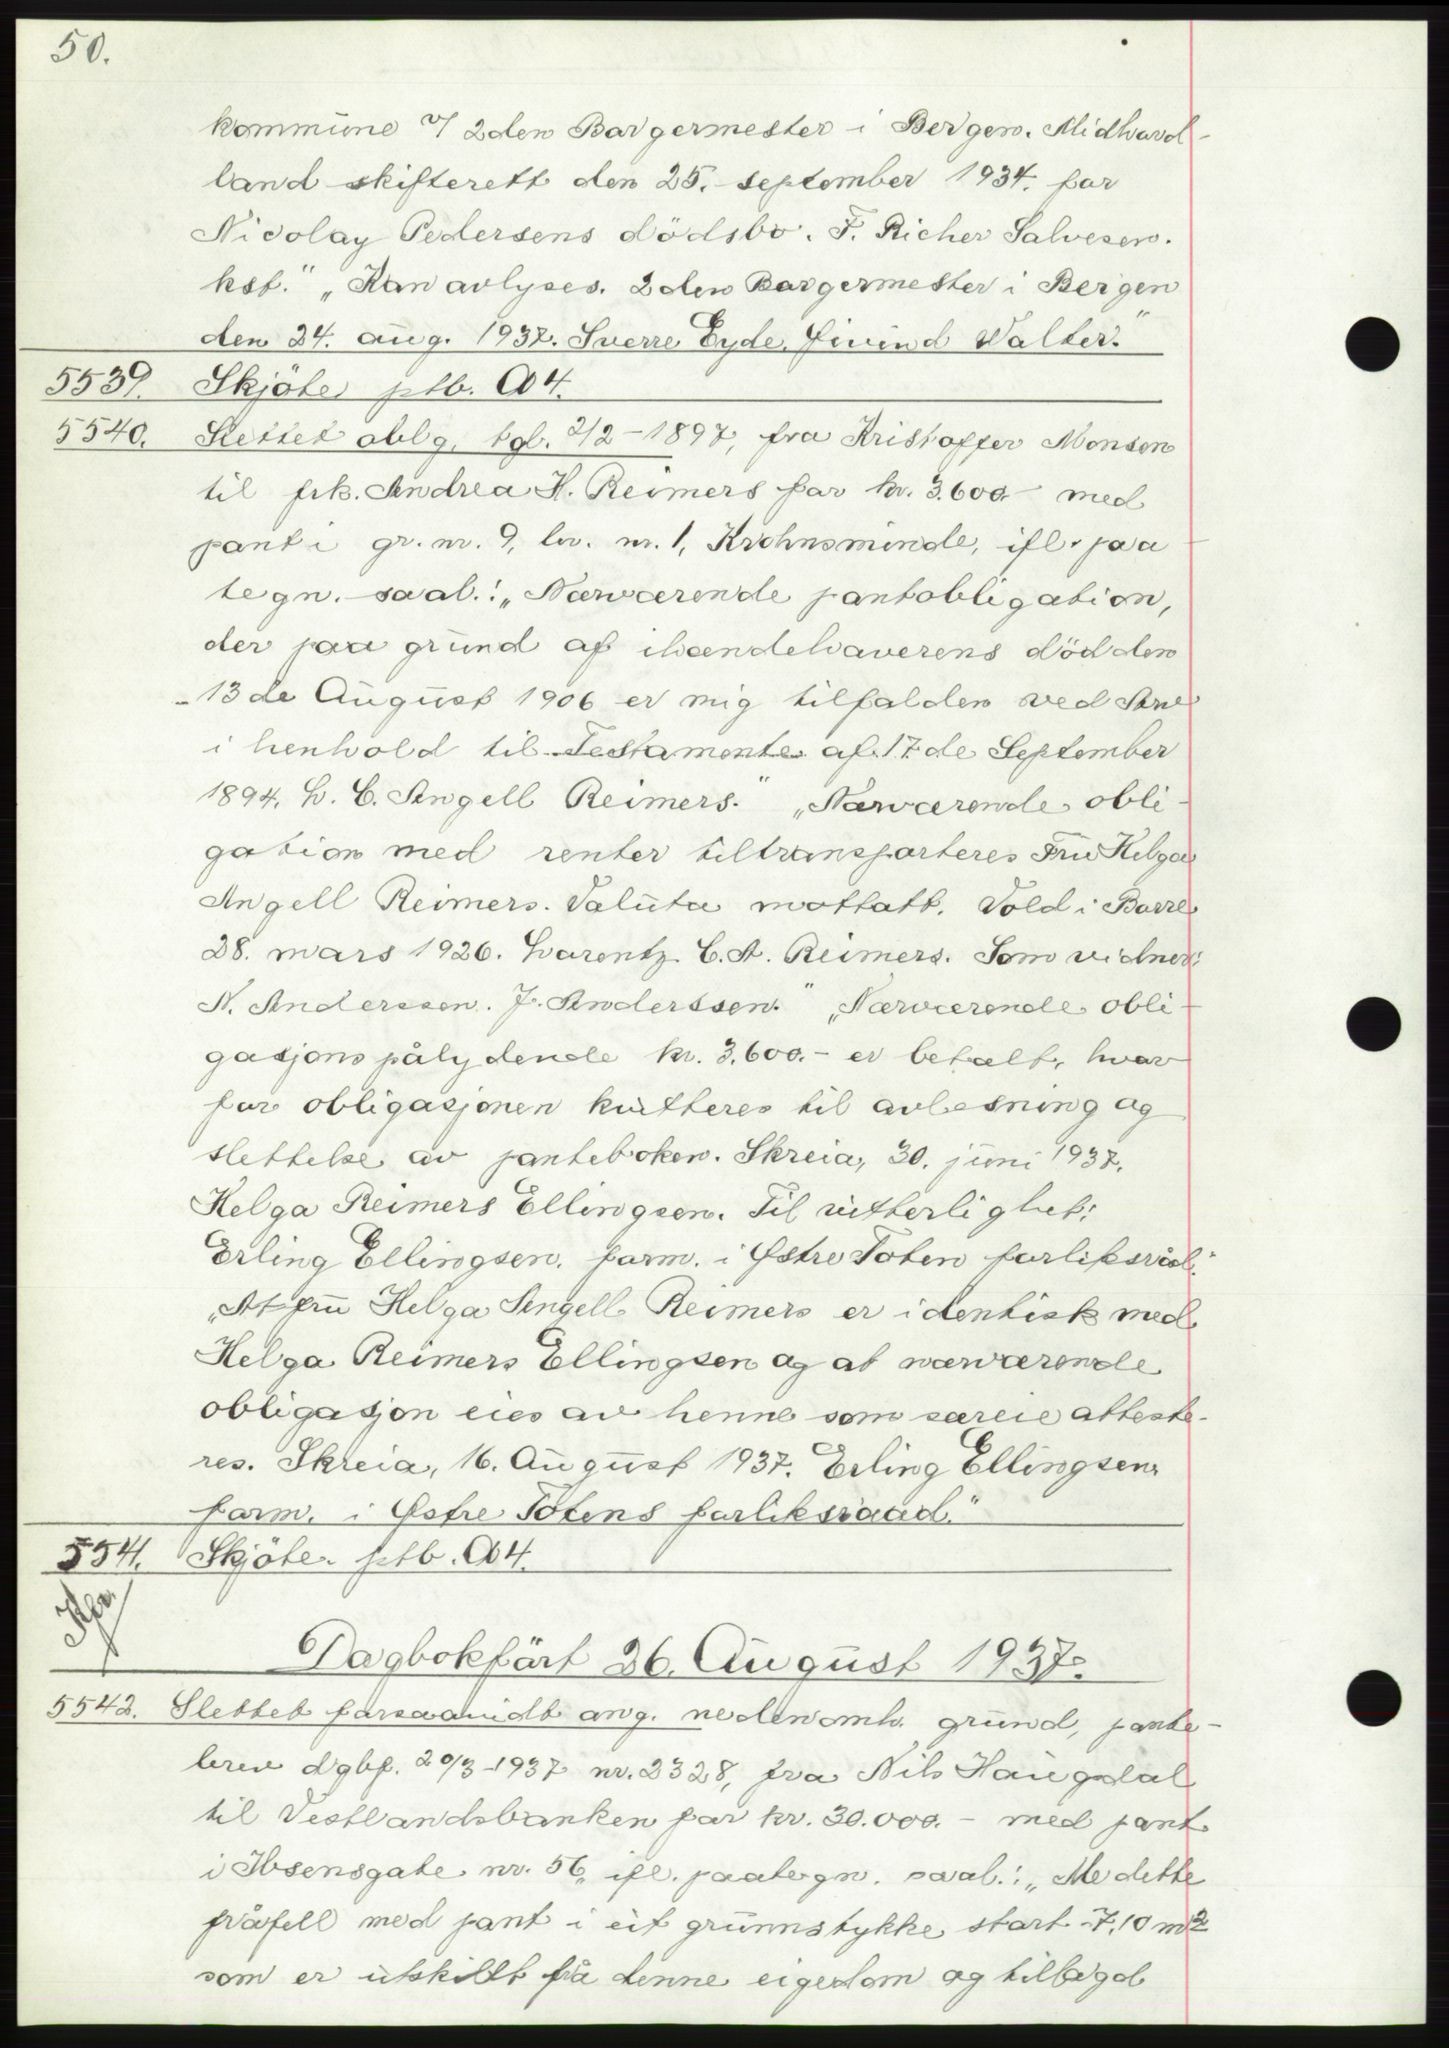 50.
kommune v/ 2den Borgermester i Bergen. Midhord-
land skifterett den 25. september 1934. for
Nicolay Pedersens dödsbo. F. Richer Salvesen.
kst." „Kan avlyses. 2den Borgermester i Bergen
den 24. aug. 1937. Sverre Eyde. Eivind Walter."
5539. Skjöte ptb. A 4.
5540. Slettet oblg. tgl. 2/2-1897, fra Kristoffer Monsen
til frk. Andrea H. Reimers for kr. 3.600 med
pant i gr. nr. 9, br. nr. 1, Krohnsminde, ifl. paa
tegn. saal.: „Nærværende pantobligation,
der paa grund af ihændehaverens död den
13de August 1906 er mig tilfalden ved Arv
i henhold til Testamente af 17de September
1894. L. C. Angell Reimers." „Nærværende obli-
gation med renter tiltransporteres Fru Helga
Angell Reimers. Valuta mottatt. Vold i Borre
28. mars 1926. Lorentz C. A. Reimers. Som vidner:
N. Anderssen. J. Anderssen." „Nærværende obli-
gasjons pålydende kr. 3.600.- er betalt, hvor
for obligasjonen kvitteres til avlesning og
slettelse av panteboken. Skreia, 30. juni 1937.
Helga Reimers Ellingsen. Til vitterlighet:
Erling Ellingsen. form. i Østre Toten forliksråd."
„At fru Helga Angell Reimers er identisk med
Helga Reimers Ellingsen og at nærværende
obligasjon eies av henne som særeie atteste-
res. Skreia, 16. August 1937. Erling Ellingsen
form. i Østre Totens forliksraad."
5541. Skjöte ptb. A 4.
Dagbokfört 26. August 1937.
5542. Slettet forsaavidt ang. nedenomh. grund, pante-
brev dgbf. 20/3-1937 nr. 2328, fra Nils Haugdal
til Vestlandsbanken for kr. 30.000.- med pant
i Ibsensgate nr. 56, ifl. paategn. saal.: „Me dette
fråfell med pant i eit grunnstykke stort 7,10 m2
som er utskilt frå denne eigedom og tillagd